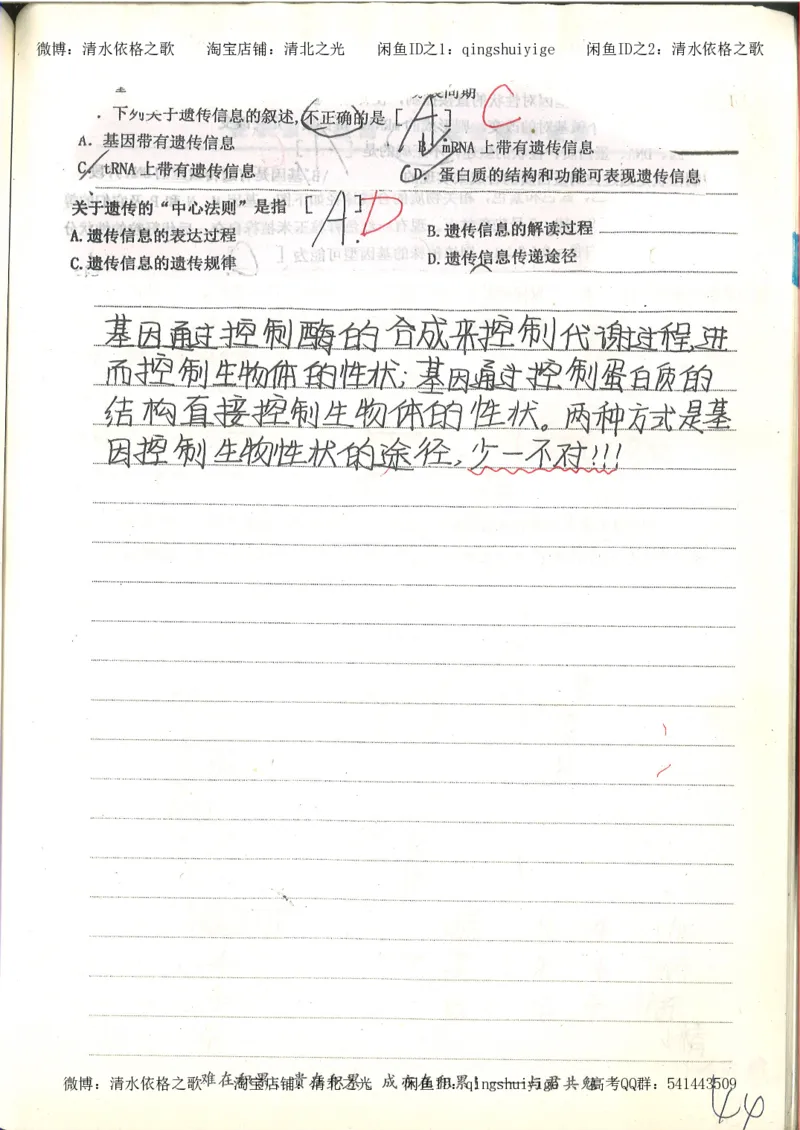 微博：清水依格之歌 淘宝店铺：清北之光 闲鱼ID之1：qingshuiyige 闲鱼ID之2：清水依格之歌
下列关于遗传信息的叙述,不正确的是 [ A. ] C
A．基因带有遗传信息 B．mRNA 上带有遗传信息
C．tRNA 上带有遗传信息 D．蛋白质的结构和功能可表现遗传信息
关于遗传的“中心法则”是指 [ A. ] D
A.遗传信息的表达过程 B.遗传信息的解读过程
C.遗传信息的遗传规律 D.遗传信息传递途径
基因通过控制酶的合成来控制代谢过程,进
而控制生物体的性状；基因通过控制蛋白质的
结构直接控制生物体的性状。两种方式是基
因控制生物性状的途径,少一不对!!!
微博：清水依格之歌 淘宝店铺：清北之光 闲鱼ID：qingshuiyige 高考QQ群：541443509
44